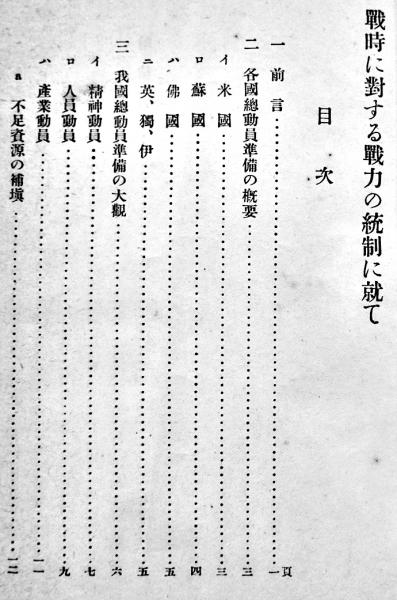 戰時に對する戰力の統制に就て
目次
一 前言……一頁
二 各國總動員準備の槪要……三
イ 米國……三
ロ 蘇國……四
ハ 佛國……五
ニ 英、獨、伊……五
三 我國總動員準備の大觀……六
イ 精神動員……七
ロ 人員動員……九
ハ 產業動員……一一
a 不足資源の補塡……一二